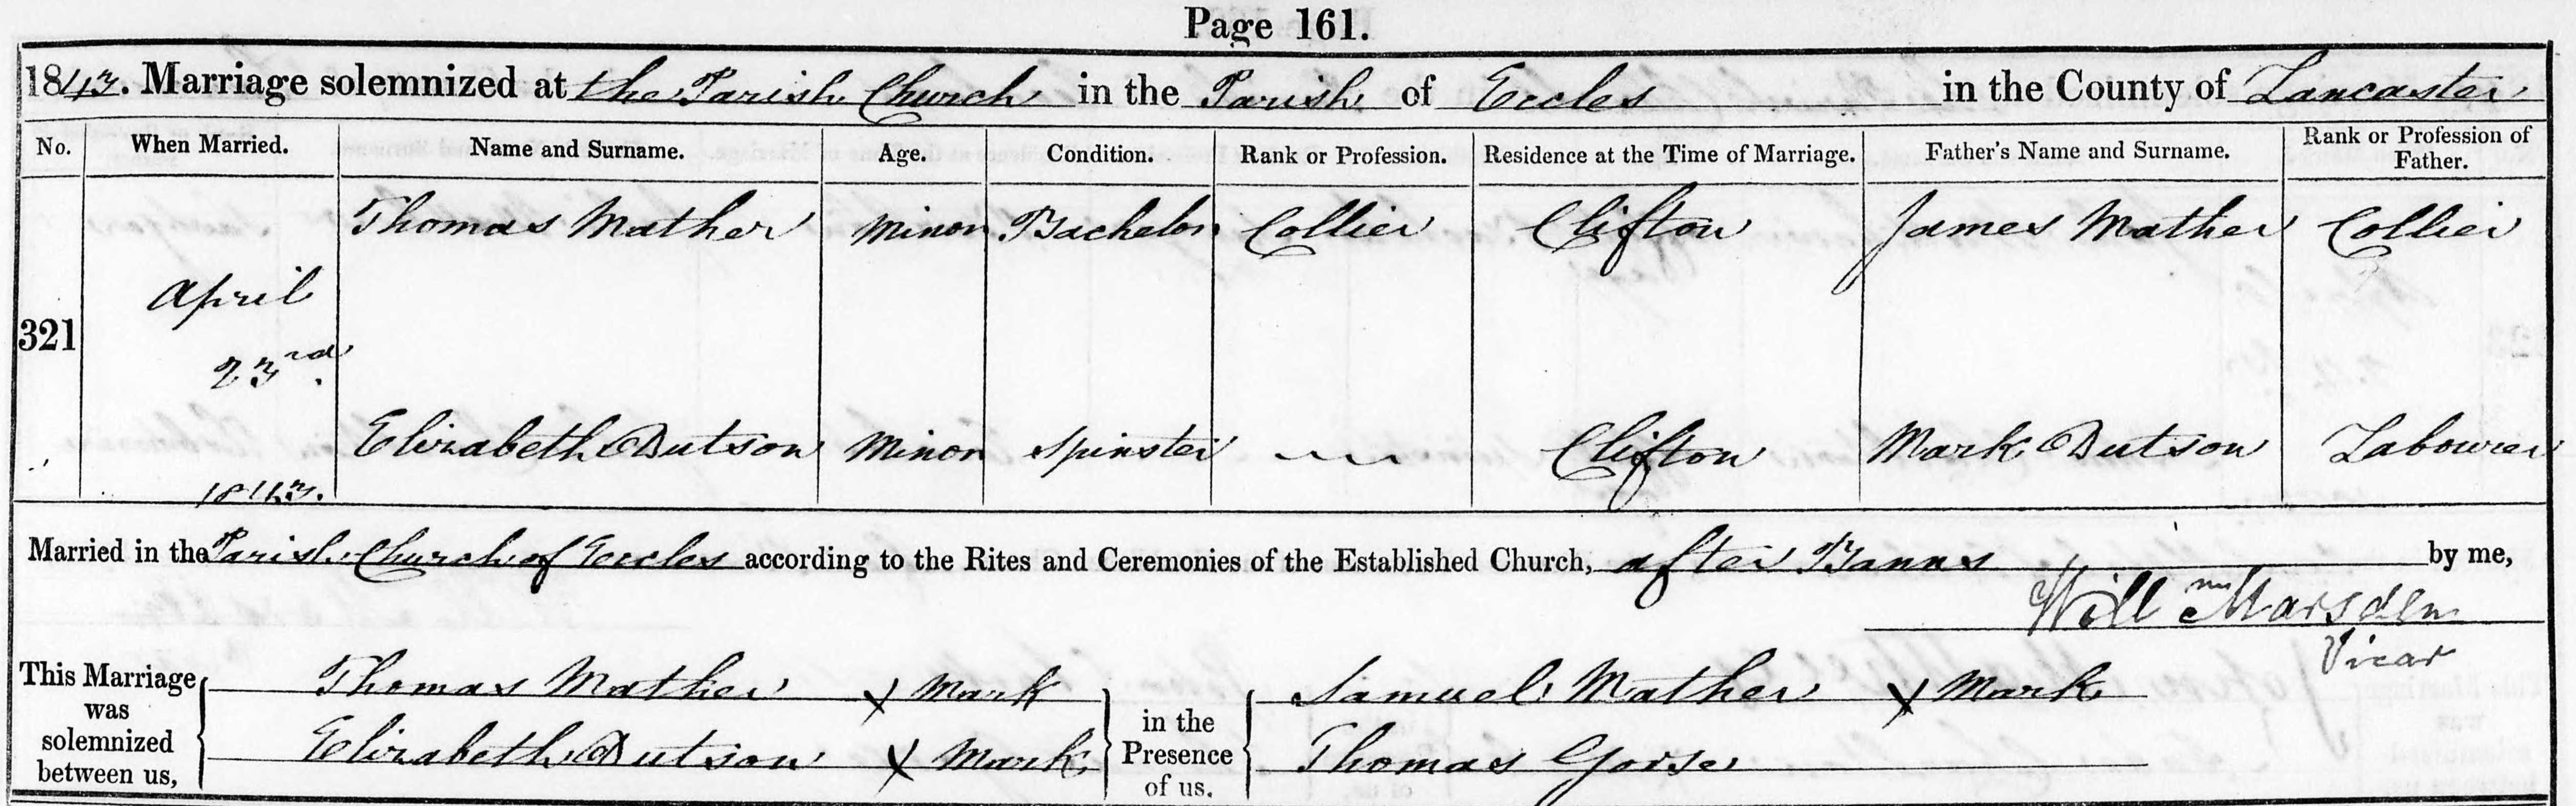 Page 161.
1843. Marriage solemnized at the Parish Church in the Parish of Eccles in the County of Lancaster
No. When Married. Name and Surname. Age. Condition. Rank or Profession. Residence at the Time of Marriage. Father's Name and Surname. Rank or Profession of Father.
Thomas Mather Minor Bachelor Collier Clifton James Mather Collier
April
321
23rd
Elizabeth Dutson Minor Spinster Clifton Mark Dutson Labourer
1843.
Married in the Parish Church of Eccles according to the Rites and Ceremonies of the Established Church, after Banns by me,
Willm Marsden
Vicar
This Marriage was solemnized between us, Thomas Mather X Mark
Elizabeth Dutson X Mark
in the Presence of us. Samuel Mather X Mark
Thomas Gorse